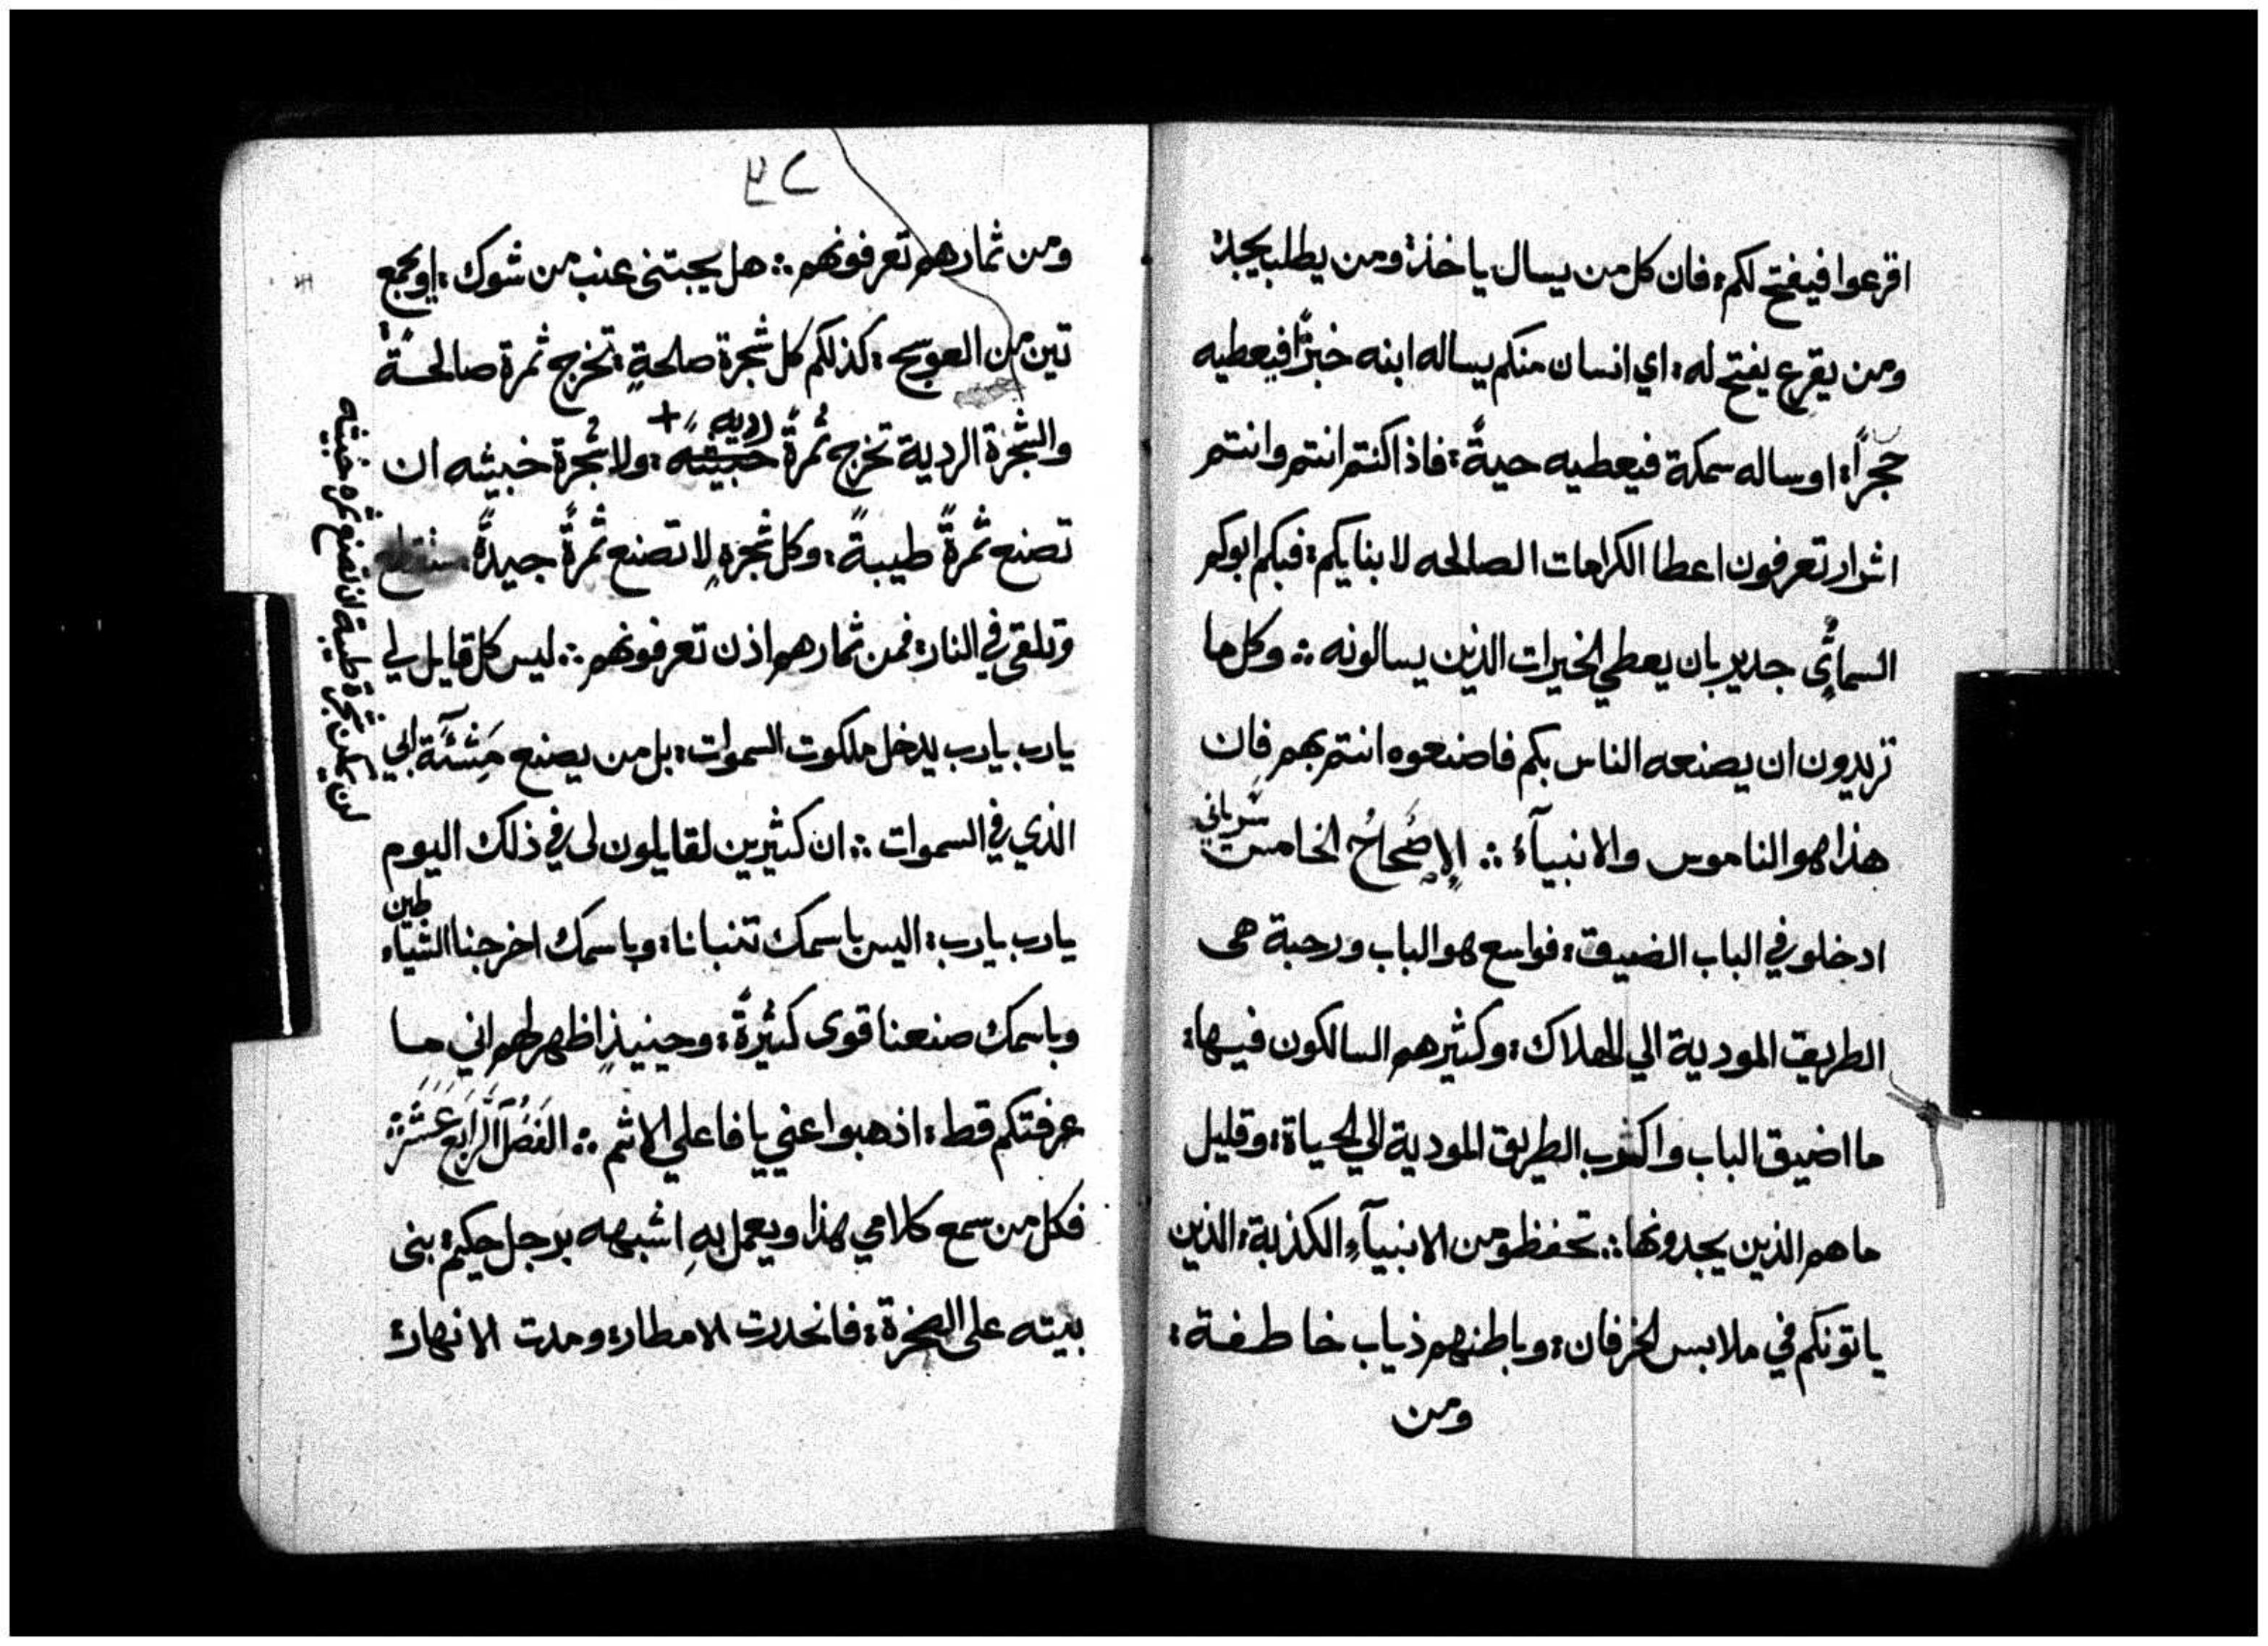 اقرعوا فيفتح لكم؛ فان كل من يسال ياخذ؛ ومن يطلب يجد؛
ومن يقرع يفتح له؛ اي انسان منكم يساله ابنه خبزًا فيعطيه
حجرًا؛ او ساله سمكة فيعطيه حيةً؛ فاذا كنتم انتم وانتم
اشرار تعرفون اعطا الكرامات الصالحه لابنايكم؛ فبكم ابوكم
السمائي جدير بان يعطي الخيرات الذين يسالونه ؞ وكل ما
تريدون ان يصنعه الناس بكم فاصنعوه انتم بهم فان
هذا هو الناموس والانبيآء ؞ الإصْحَاحُ الخامس سرياني
ادخلو في الباب الضيق؛ فواسع هو الباب ورحبة هى
الطريق المودية الي الهلاك؛ وكثير هم السالكون فيها؛
ما اضيق الباب واكرب الطريق المودية الي الحياة؛ وقليل
ما هم الذين يجدونها ؞ تحفظو من الانبيآء الكذبة؛ الذين
ياتونكم في ملابس الخرفان؛ وباطنهم ذياب خاطفة؛
ومن
٢٤
ومن ثمارهم تعرفونهم ؞ هل يجتنى عنب من شوك؛ او يجمع
تين من العوسج؛ كذلكم كل شجرة صلحةٍ؛ تخرج ثمرة صالحةً
والشجرة الردية تخرج ثمرةً خبيثه ردیه +؛ ولا شجرة خبيثه ان
تصنع ثمرةً طيبةً؛ وكل شجرهٍ لا تصنع ثمرةً جيدةً؛ ستقطع
وتلقى في النار؛ فمن ثمارهم اذن تعرفونهم ؞ ليس كل قايل لي
يارب يارب يدخل ملكوت السموات؛ بل من يصنع مَشِئَة ابي
الذي في السموات ؞ ان كثيرين لقايلون لى في ذلك اليوم
يارب يارب؛ اليس باسمك تنبانا؛ وباسمك اخرجنا الشياطين
وباسمك صنعنا قوى كثيرةً؛ وحينيذٍ اظهر لهم اني ما
عرفتكم قط؛ اذهبوا عني يا فاعلي الاثم ؞ الفَصْلُ الرَابِع عَشَر ؞
فكل من سمع كلامي هذا ويعمل بهِ اشبهه برجل حكيم؛ بنى
بيته على الصخرة؛ فانحدرت الامطار؛ ومدت الانهار؛
لن يمكن شجرة طيبة ان تصنع ثمره خبيثه